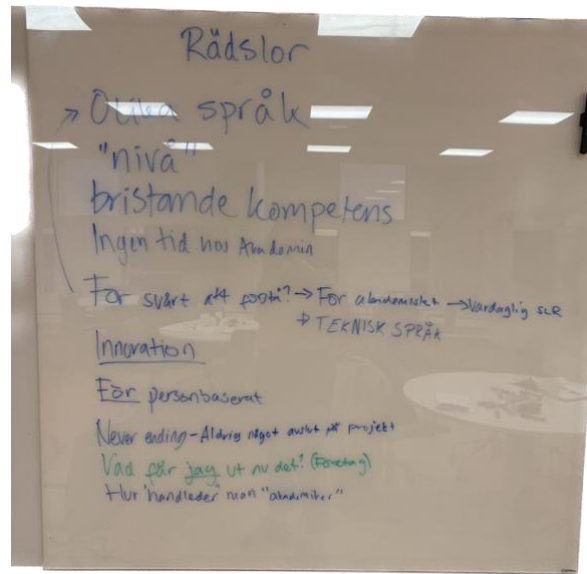 Rädslor
→ Olika språk
"nivå"
bristande kompetens
Ingen tid hos Akademin
För svårt att förstå? → För akademiskt → Vardaglig
→ TEKNISK SPRÅK
Innovation
För personbaserat
Never ending - Aldrig något avslut på projekt
Vad får jag ut av det? (Företag)
Hur "handleder" man "akademiker"